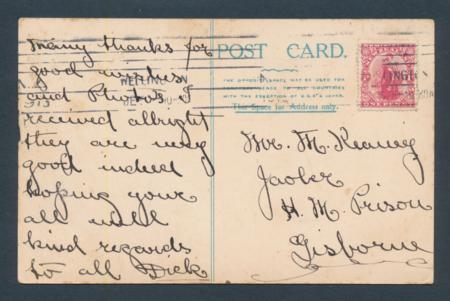 Many thanks for
good wishes
and Photos I
received allright
they are very
good indeed
hoping your
all well
kind regards
to all Dick
POST CARD.
THE OPPOSITE SPACE MAY BE USED FOR
CORRESPONDENCE TO ALL COUNTRIES
WITH THE EXCEPTION OF
This Space for Address only.
WELLINGTON
1913
ONE PENNY
Mr. M. Kearney
Jaoler
H. M. Prison
Gisborne